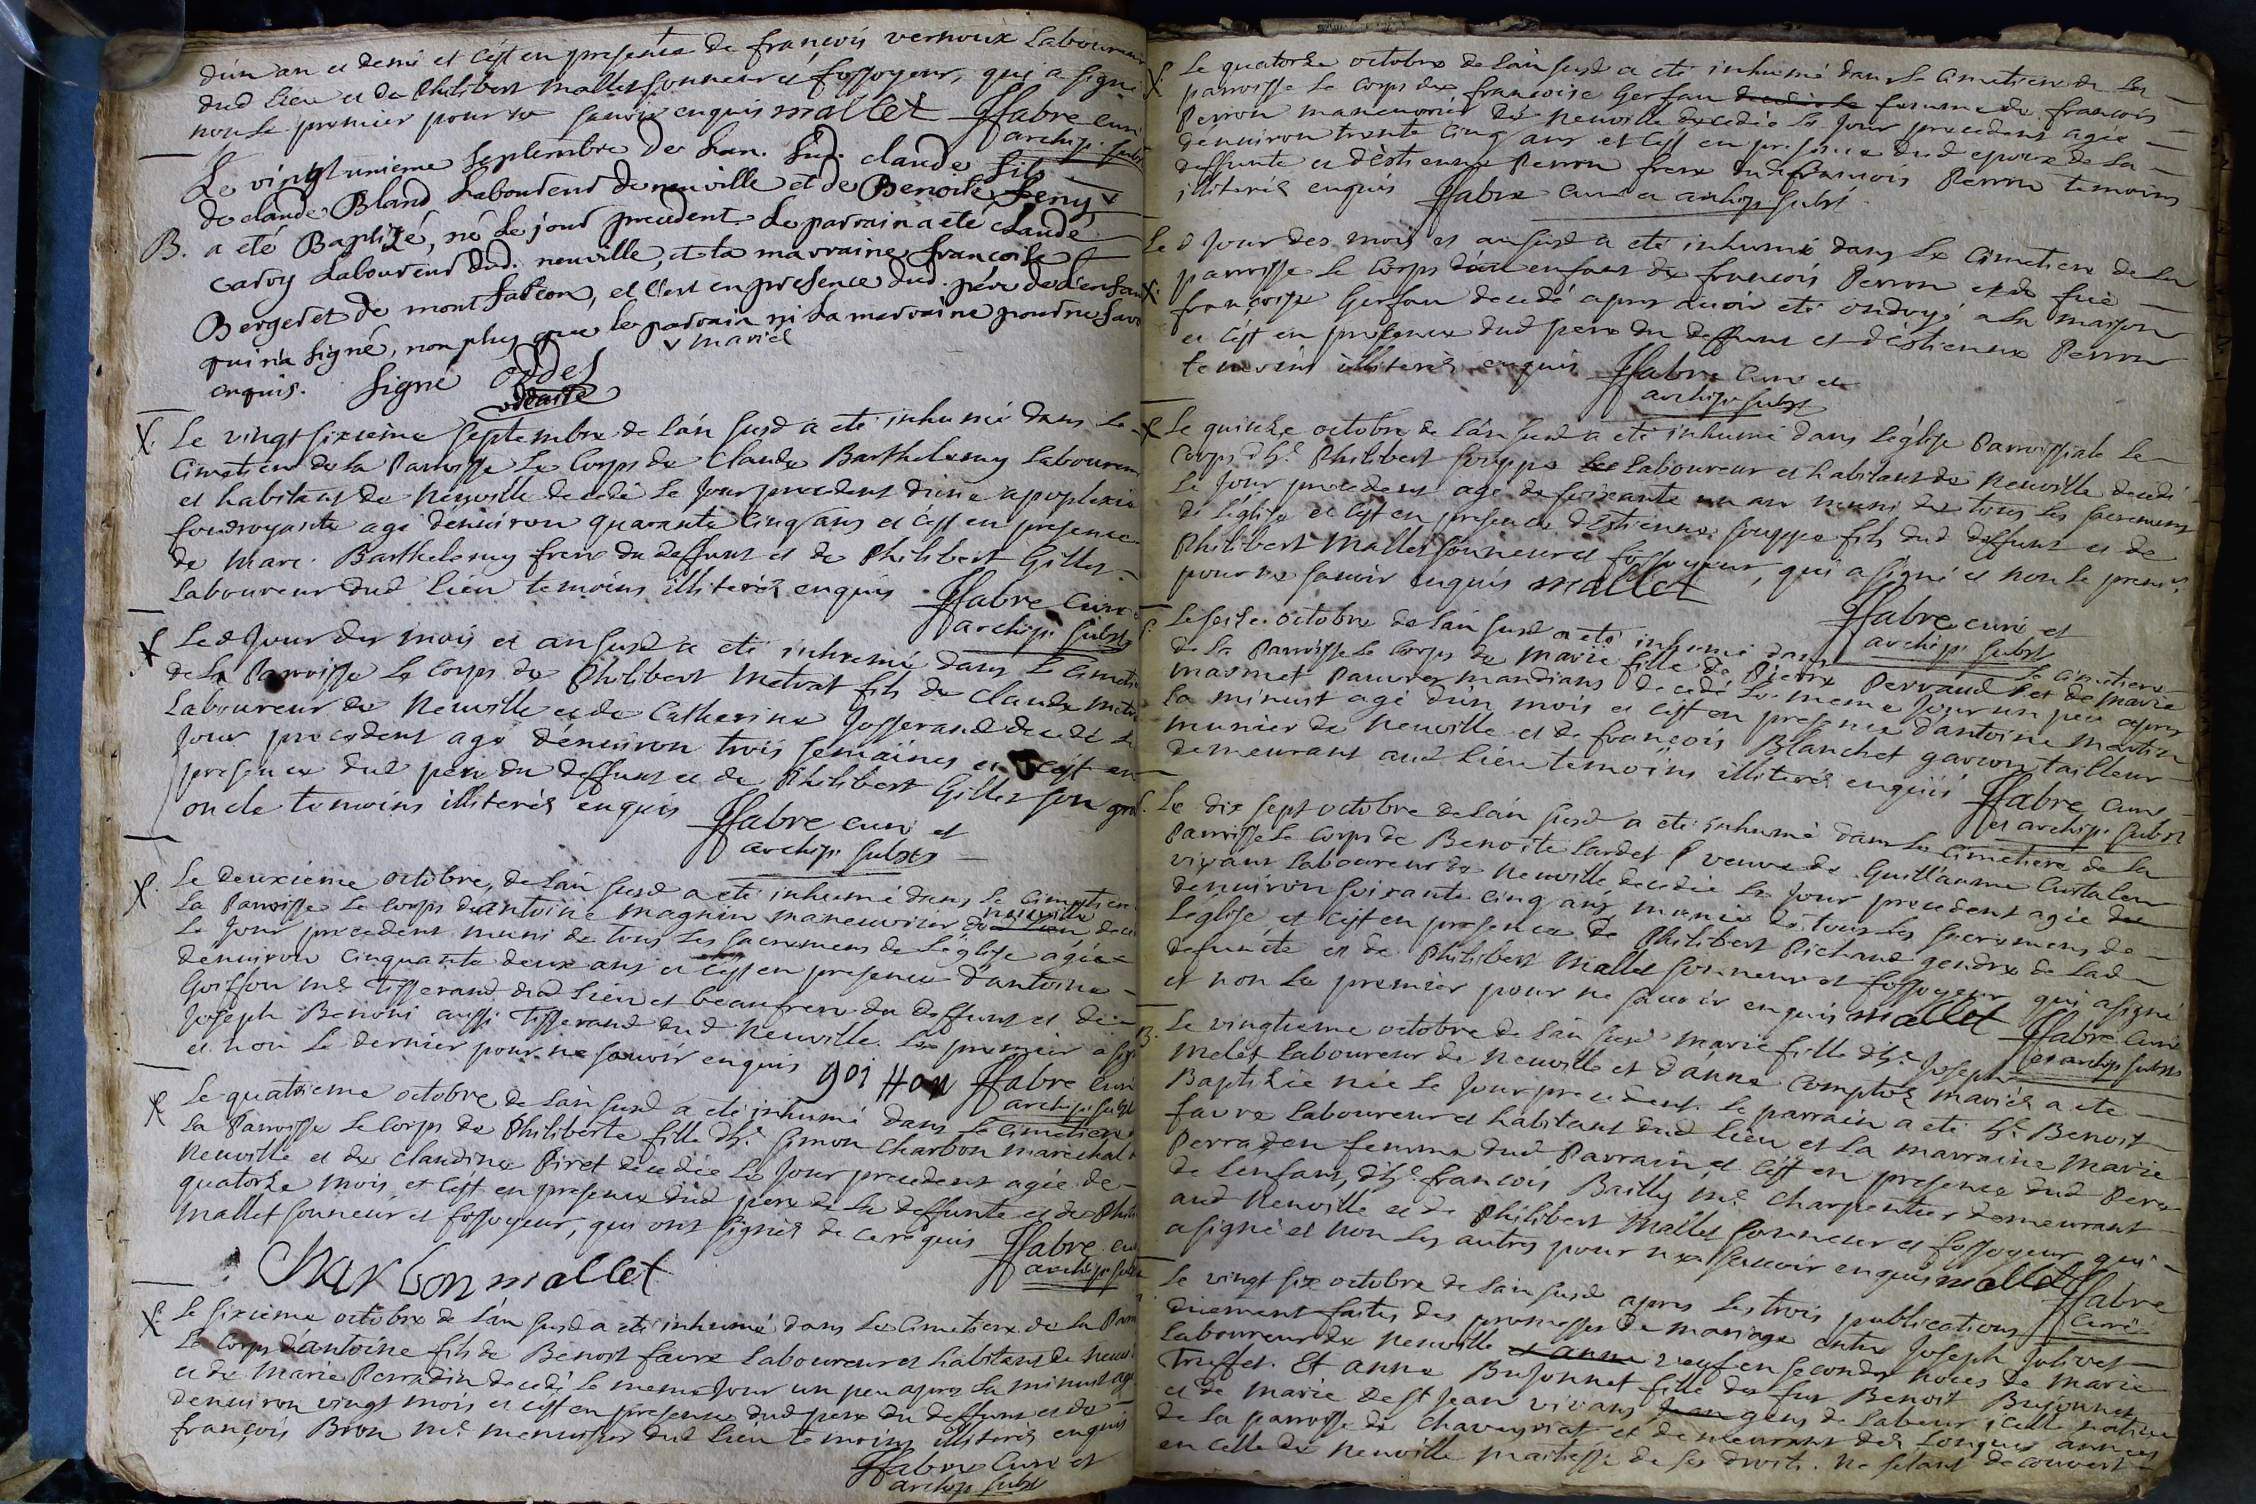 d'un an et demi et c'est en presence de françois vernoux Laboureur
dud lieu et de Philibert Mallet sonneur et fossoyeur, qui a signé
non le premier pour ne savoir enquis mallet ffabre curé
archip. subst
Le vingt unieme Septembre de l'an susd. claude fils
de claude Bland Laboureur de neuville et de Benoite
B. a eté Baptizé, né le jour precedent. Le parrain a eté claude
cadoy Laboureur dud. neuville, et la marraine françoise
Bergeret de montfalcon, et c'est en presence dud. pére de l'enfant
qui n'a signé, non plus que le parrain ni la marraine pour ne savoir
v mariés
enquis. Signé
vicaire
Le vingt sixieme Septembre de l'an susd a eté inhumé dans le
Cimetiere de la Parroisse Le Corps de Claude Barthelemy Laboureur
et habitant de Neuville decedé le Jour precedent d'une apoplexie
foudroyante agé d'environ quarante cinq ans et c'est en presence
de Marc Barthelemy frere du deffunt et de Philibert Gillet
Laboureur dud lieu temoins illiterés enquis ffabre curé
archip. subst
Le d Jour des mois et an susd a eté inhumé dans le cimetiere
de la Parroisse Le corps de Philibert Metrat fils de Claude Metrat
Laboureur de Neuville et de Catherine Josserand decedé le
Jour precedent agé d'environ trois semaines et c'est en
presence dud pere du deffunt et de Philibert Gillet son grand
oncle temoins illiterés enquis ffabre curé et
archip. subst
Le deuxieme octobre, de l'an susd a eté inhumé dans le cimetiere
La Parroisse Le corps d'antoine Magnin manouvrier de neuville
Le Jour precedent muni de tous les sacremens de L'église agé
d'environ cinquante deux ans et c'est en presence d'antoine
Goiffon me tisserand dud lieu et beaufrere du deffunt et de
Joseph Benoni aussi tisserand dud Neuville. Le premier a signé
et non le dernier pour ne savoir enquis goiffon ffabre curé
archip. subst
Le quatrieme octobre de l'an susd a eté inhumé dans le cimetiere
La Parroisse Le corps de Philiberte fille d'h.e Simon Charbon marechal
Neuville et de Claudine Piret decedée le Jour precedent agée de
quatorze mois et c'est en presence dud pere de la deffunte et de Phili
Mallet sonneur et fossoyeur, qui ont signés de ce requis ffabre curé
archip. subst
Charbon mallet
Le sixieme octobre de l'an susd a eté inhumé dans le cimetiere de la Parr
Le corps d'antoine fils de Benoit favre Laboureur et habitant de Neuville
et de Marie Perradin decedé le meme Jour un peu apres la minuit agé
d'environ vingt mois et c'est en presence dud pere du deffunt et de
françois Bron me menuisier dud lieu temoins illiterés enquis
ffabre curé et
archip. subst
Le quatorze octobre de l'an susd a eté inhumé dans le cimetiere de la
parroisse le corps de françoise Gerfau femme de françois
Perron maneuvrier de Neuville decedée le Jour precedent agée
d'environ trente cinq ans et c'est en presence dud epoux de la
deffunte et d'estienne Perron frere dud françois Perron temoins
illiterés enquis ffabre curé et archip. subst
Le d Jour des mois et an susd a eté inhumé dans le cimetiere de la
parroisse le corps d'un enfant de françois Perron et de fue
françoise Gerfau decedé apres avoir eté ondoyé a la maison
et c'est en presence dud pere du deffunt et d'estienne Perron
temoins illiterés enquis ffabre curé et
archip. subst
Le quinze octobre de l'an susd a eté inhumé dans l'église Parroissiale le
Corps d'h.e Philibert Souppe Laboureur et habitant de Neuville decedé
le Jour precedent agé de soixante un an muni de tous les sacremens
de l'église et c'est en presence d'Estienne Souppe fils dud deffunt et de
Philibert Mallet sonneur et fossoyeur, qui a signé et non le premier
pour ne savoir enquis mallet
ffabre curé et
archip. subst
Le seize octobre de l'an susd a eté inhumé dans le cimetiere
de la Parroisse le corps de Marie fille de Pierre Perraud et de Marie
Marmet Pauvres mandians decedé le meme Jour un peu apres
la minuit agé d'un mois et c'est en presence d'antoine Martin
munier de Neuville et de françois Blanchet garçon tailleur
demeurant aud lieu temoins illiterés enquis ffabre curé
et archip. subst
Le dix sept octobre de l'an susd a eté inhumé dans le cimetiere de la
Parroisse le corps de Benoite Lardet veuve de Guillaume
vivant Laboureur de Neuville decedée le Jour precedent agée
d'environ soixante cinq ans munie de tous les sacremens de
l'église, et c'est en presence de Philibert Pichaud gendre de lad
defunte et de Philibert Mallet sonneur et fossoyeur qui a signé
et non le premier pour ne savoir enquis mallet ffabre curé
et archip. subst
B. Le vingtieme octobre de l'an susd Marie fille d'h.e Joseph
Melet Laboureur de Neuville et d'anne Comptoz mariés a eté
Baptizée née le Jour precedent. Le parrain a eté h.e Benoit
favre Laboureur et habitant dud lieu et la marraine Marie
Perraden femme dud Parrain, et c'est en presence dud Pere
de l'enfant, d'h.e françois Bailly me Charpentier demeurant
aud Neuville et de Philibert Mallet sonneur et fossoyeur qui
a signé et non les autres pour ne savoir enquis mallet ffabre
curé
Le vingt six octobre de l'an susd apres les trois publications
duement faites des promesses de mariage entre Joseph Jolivet
Laboureur de Neuville veuf en secondes noces de Marie
Truffet. Et anne Bujonnet fille de feu Benoit Bujonnet
et de Marie de St Jean vivans gens de labeur, icelle native
de la parroisse de Chaveyriat et demeurant dès longues années
en celle de Neuville maitresse de ses droits. ne s'etant decouvert